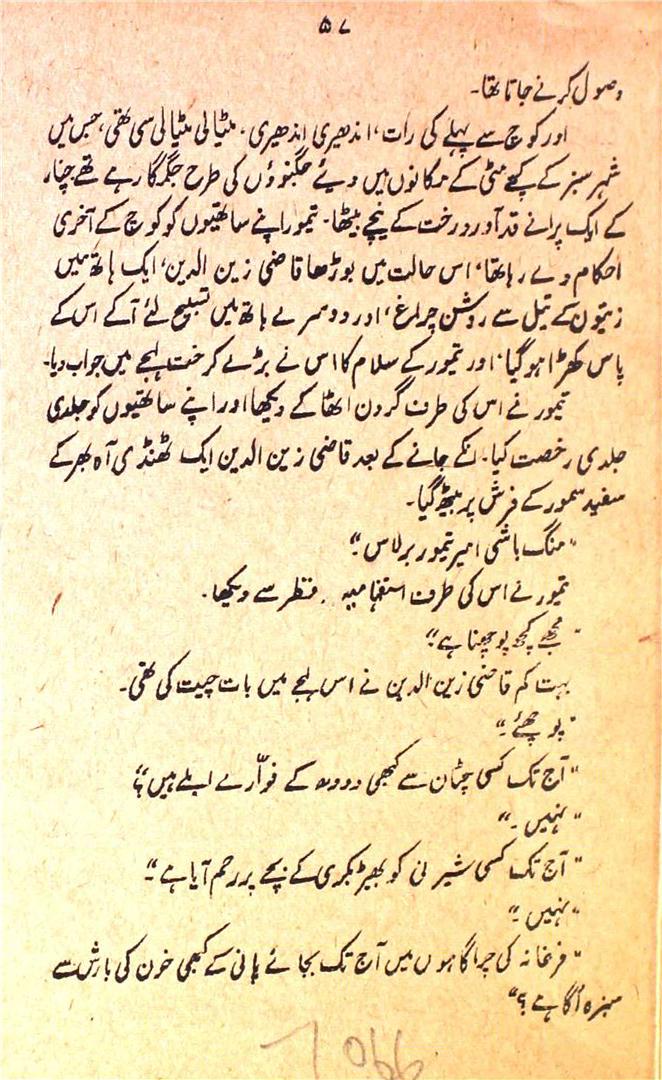 ۵۷
وصول کرنے جاتا تھا۔
اور کوچ سے پہلے کی رات، اندھیری اندھیری۔ مٹیالی مٹیالی سی تھی، جس میں
شہر سبز کے کچے مٹی کے مکانوں میں دیئے جگنوؤں کی طرح جگمگا رہے تھے چنار
کے ایک پرانے قدآور درخت کے نیچے بیٹھا۔ تیمور اپنے ساتھیوں کو کوچ کے آخری
احکام دے رہا تھا، اس حالت میں بوڑھا قاضی زین الدین، ایک ہاتھ میں
زیتون کے تیل سے روشن چراغ، اور دوسرے ہاتھ میں تسبیح لئے آکے اس کے
پاس کھڑا ہو گیا، اور تیمور کے سلام کا اس نے بڑے کرخت لہجے میں جواب دیا۔
تیمور نے اس کی طرف گردن اٹھا کے دیکھا اور اپنے ساتھیوں کو جلدی
جلدی رخصت کیا۔ انکے جانے کے بعد قاضی زین الدین ایک ٹھنڈی آہ بھر کے
سفید سمور کے فرش پر بیٹھ گیا۔
"منگ باشی امیر تیمور برلاس۔"
تیمور نے اس کی طرف استفہامیہ نظر سے دیکھا۔
"مجھے کچھ پوچھنا ہے۔"
بہت کم قاضی زین الدین نے اس لہجے میں بات چیت کی تھی۔
"پوچھئے۔"
"آج تک کسی چٹان سے کبھی دودھ کے فوّارے ابلے ہیں؟"
"نہیں۔"
"آج تک کسی شیرنی کو بھیڑ بکری کے بچے پر رحم آیا ہے۔"
"نہیں۔"
"فرغانہ کی چراگاہوں میں آج تک بجائے پانی کے کبھی خون کی بارش سے
سبزہ اُگا ہے؟"